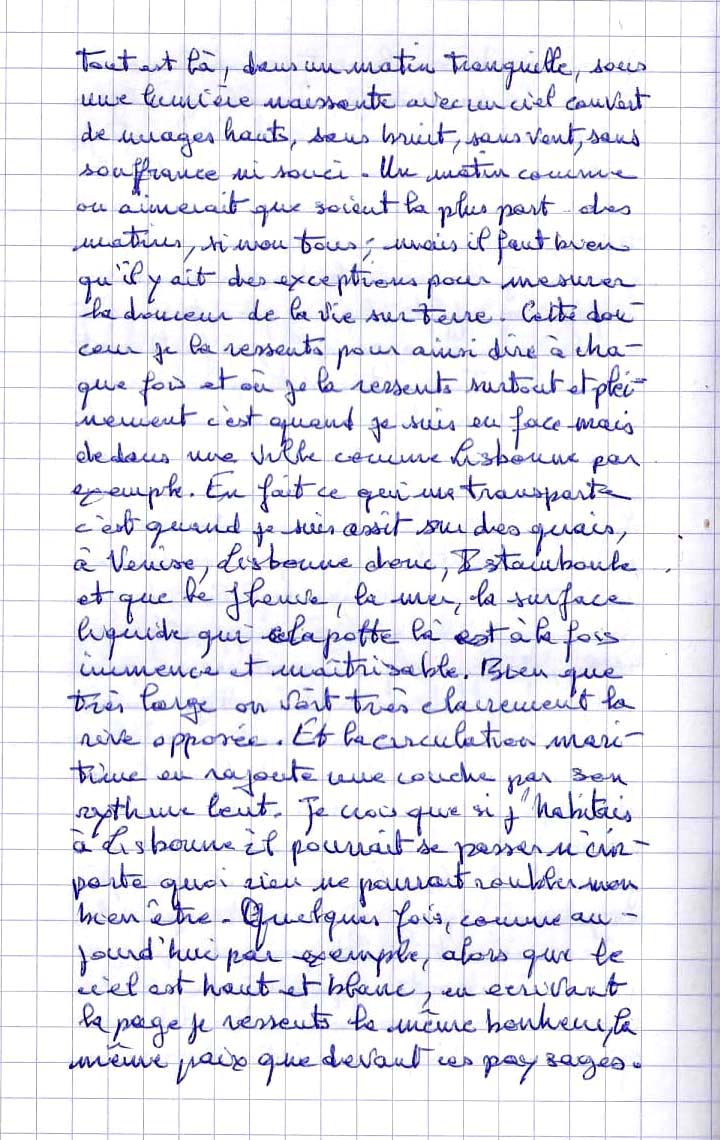 tout est là, dans un matin tranquille, sous
une lumière naissante avec un ciel couvert
de nuages hauts, sans bruit, sans vent, sans
souffrance ni souci. Un matin comme
on aimerait que soient la plus part des
matins, si non tous ; mais il faut bien
qu'il y ait des exceptions pour mesurer
la douceur de la vie sur terre. Cette dou-
ceur je la ressents pour ainsi dire à cha-
que fois et où je la ressents surtout et plei-
nement c'est quand je suis en face mais
dedans une ville comme Lisbonne par
exemple. En fait ce qui me transporte
c'est quand je suis assit sur des quais,
à Venise, Lisbonne donc, Istamboule
et que le fleuve, la mer, la surface
liquide qui clapotte là est à la fois
immence et maîtrisable. Bien que
très large on voit très clairement la
rive opposée. Et la circulation mari-
time en rajoute une couche par son
rythme lent. Je crois que si j'habitais
à Lisbonne il pourrait se passer n'im-
porte quoi rien ne pourrait troubler mon
bien être. Quelques fois, comme au-
jourd'hui par exemple, alors que le
ciel est haut et blanc, en ecrivant
la page je ressents le même bonheur, la
même paix que devant ces paysages.